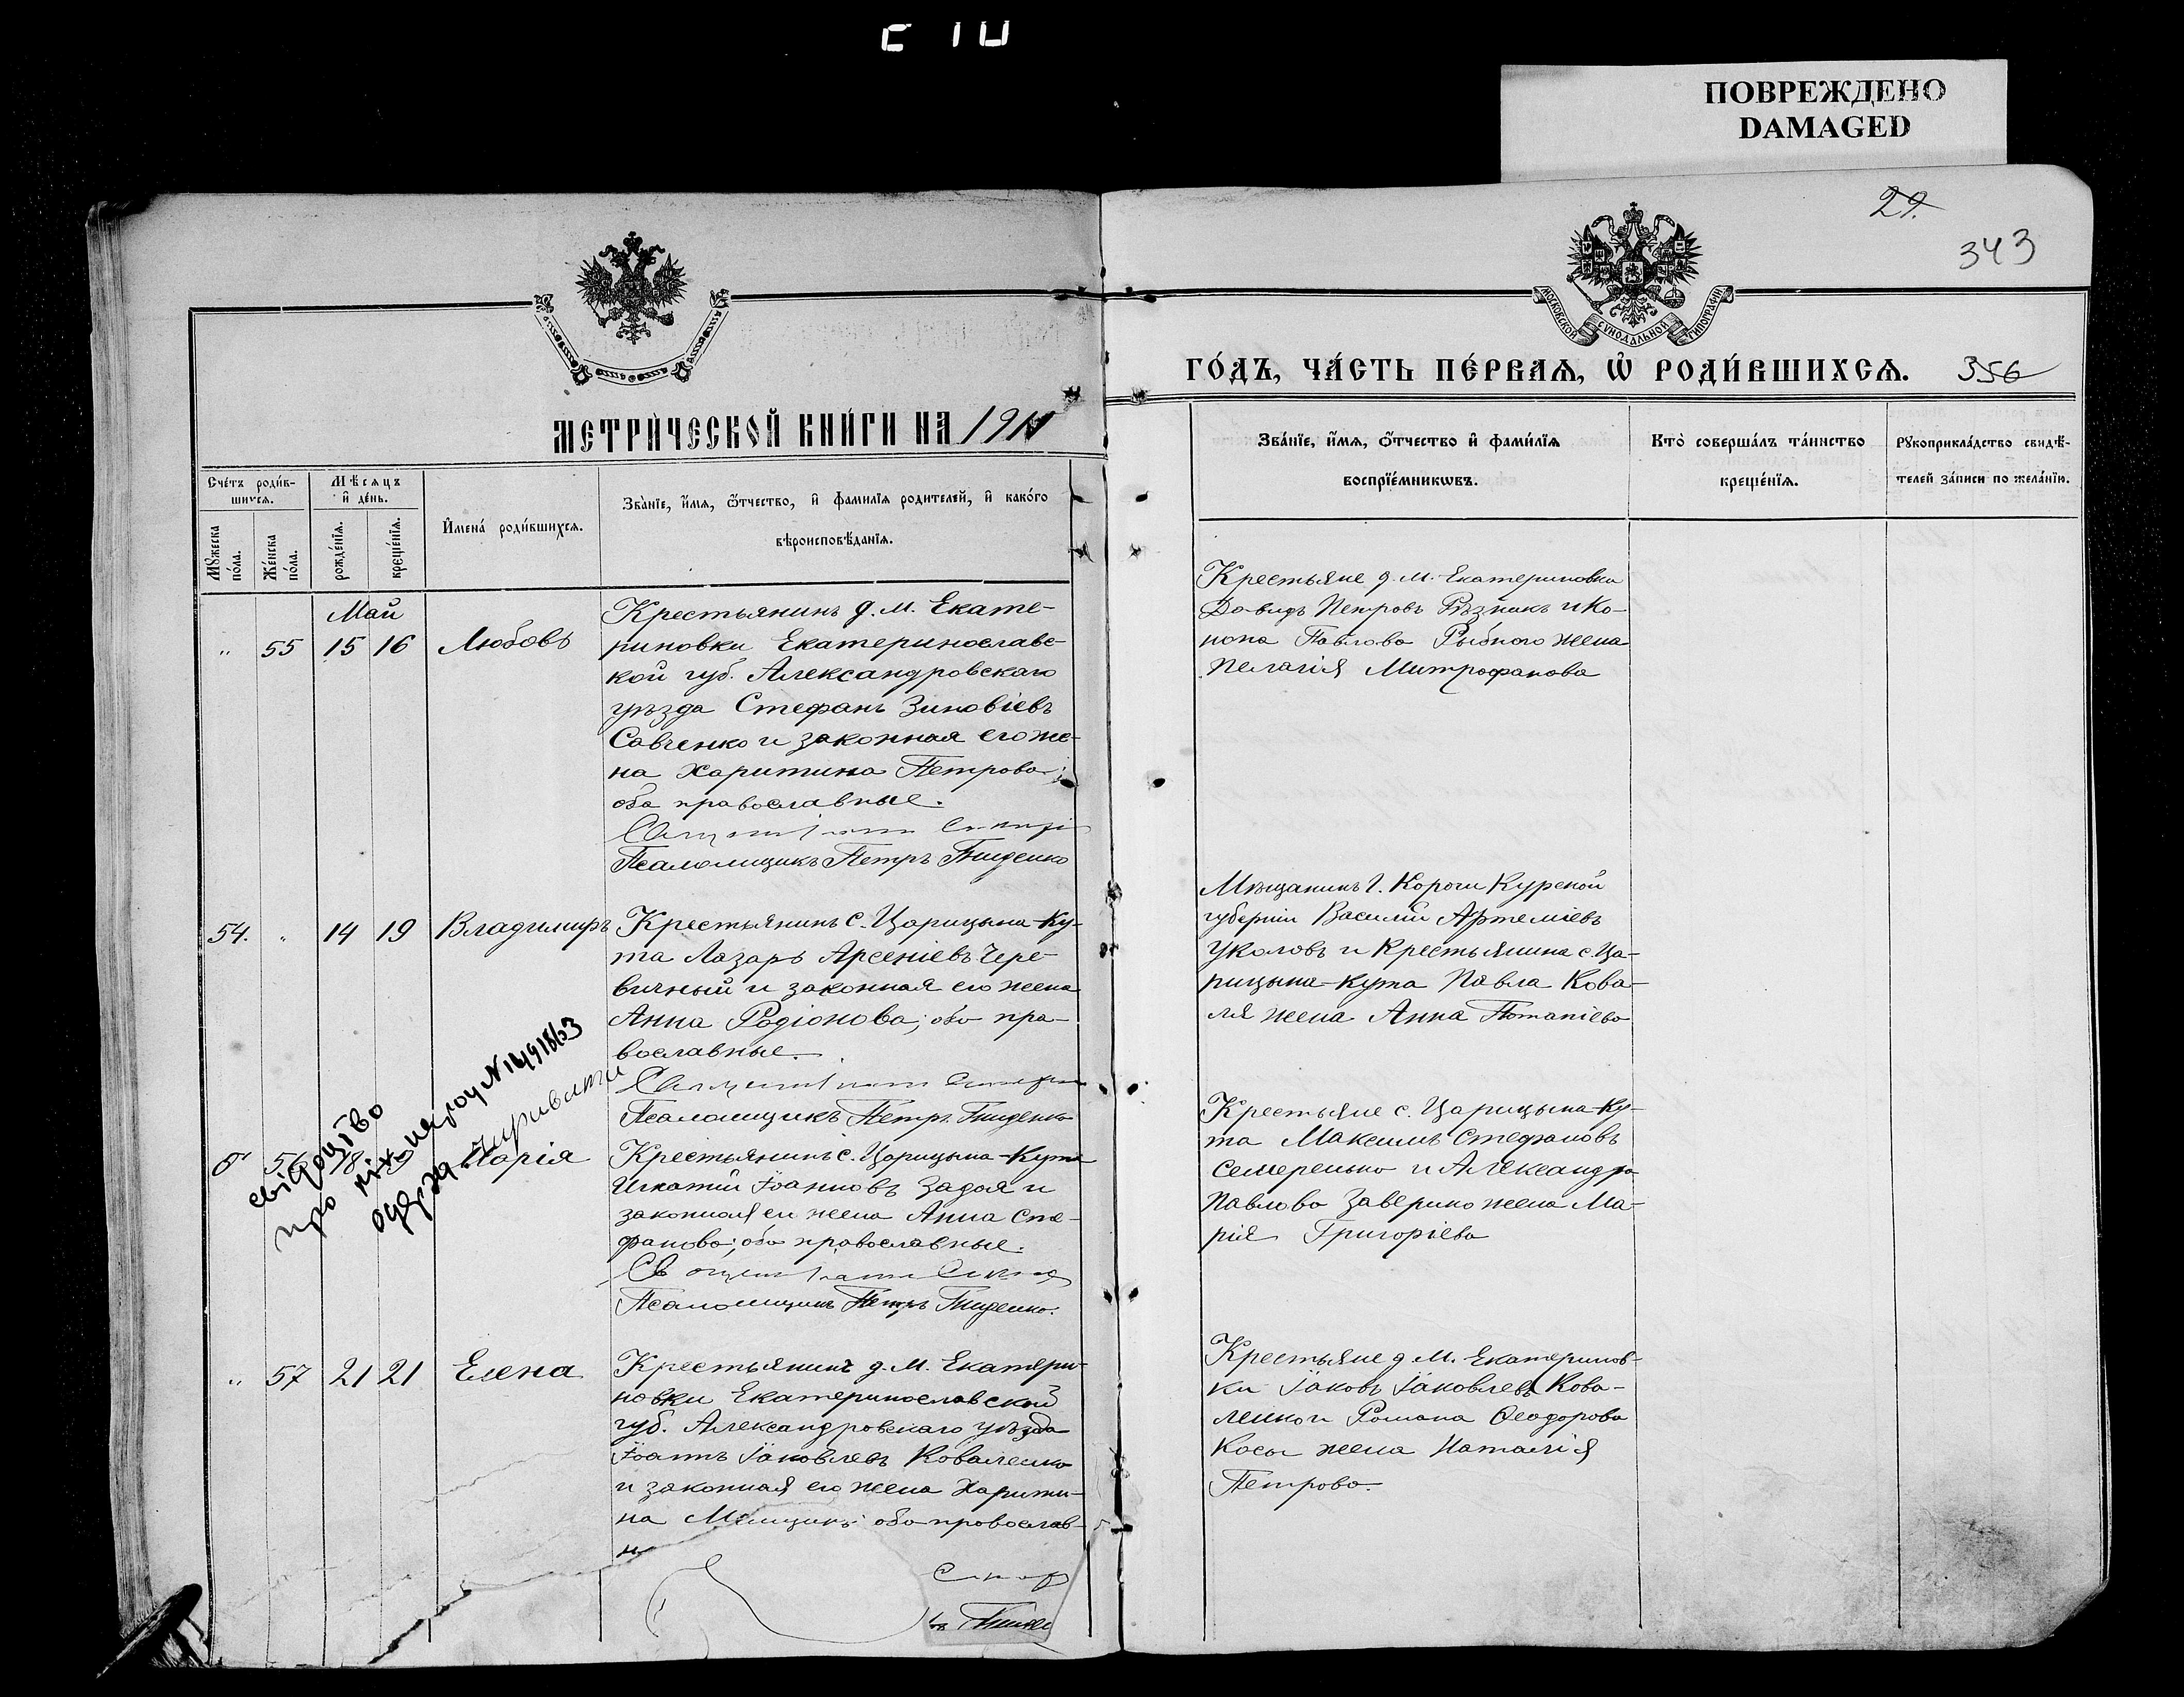 ПОВРЕЖДЕНО
DAMAGED
29.
343
МОСКОВСКОЙ СѴНОДАЛЬНОЙ ТИПОГРАФІИ
МЕТРИ́ЧЕСКОЙ КНИ́ГИ НА 1911
ГО́ДЪ, ЧА́СТЬ ПЕ́РВАѦ, Ѽ РОДИ́ВШИХСѦ. 356
Сче́тъ роди́в-
шихся.
Мѣсяцъ
и҆ де́нь.
Мꙋжеска по́ла.
Же́нска по́ла.
рожде́нїѧ.
креще́нїѧ.
И҆мена́ роди́вшихсѧ.
Зва́нїе, и҆́мѧ, ѻ҆́тчество, и҆ фами́лїѧ роди́телей, и҆ како́го
вѣроисповѣ́данїѧ.
Зва́нїе, и҆́мѧ, ѻ҆́тчество и҆ фами́лїѧ
воспрїе́мникѡвъ.
Кто̀ соверша́лъ та́инство
креще́нїѧ.
Рꙋкоприкла́дство свидѣ́-
телей за́писи по жела́нїю.
Май
" 55 15 16 Любовь
Крестьянинъ д. м. Екате-
риновки Екатеринославс-
кой губ. Александровскаго
уѣзда Стефанъ Зиновіевъ
Савченко и законная его же-
на Харитина Петрова;
оба православные.
Псаломщикъ Петръ
Крестьяне д. м. Екатериновки
Давидъ Петровъ Рѣзникъ и Ко-
нона Павлова Рыбного жена
Пелагія Митрофанова
54. " 14 19 Владимиръ
Крестьянинъ с. Царицына-Ку-
та Лазарь Арсеніевъ Чере-
вичный и законная его жена
Анна Родіонова; оба пра-
вославные.
Псаломщикъ Петръ
Мѣщанинъ г. Корочи Курской
губерніи Василій Артеміевъ
Уколовъ и Крестьянина с. Ца-
рицына-Кута Павла Кова-
ля жена Анна Потапіева
свідоцтво
про
одержа
56 18 Марія
Крестьянинъ с. Царицына-Кута
Игнатій Іоанновъ Задоя и
законная его жена Анна Сте-
фанова; оба православные.
Псаломщикъ Петръ
Крестьяне с. Царицына-Ку-
та Максимъ Стефановъ
Семеренько и Александра
Павлова Заверико жена Ма-
рія Григоріева
" 57 21 21 Елена
Крестьянинъ д. м. Екатери-
новки Екатеринославской
губ. Александровскаго уѣзда
Іоаннъ Іаковлевъ Коваленко
и законная его жена Харити-
на оба православ-
н
Крестьяне д. м. Екатеринов-
ки Іаковъ Іаковлевъ Кова-
ленко и Романа Ѳеодорова
Косы жена Наталія
Петрова.